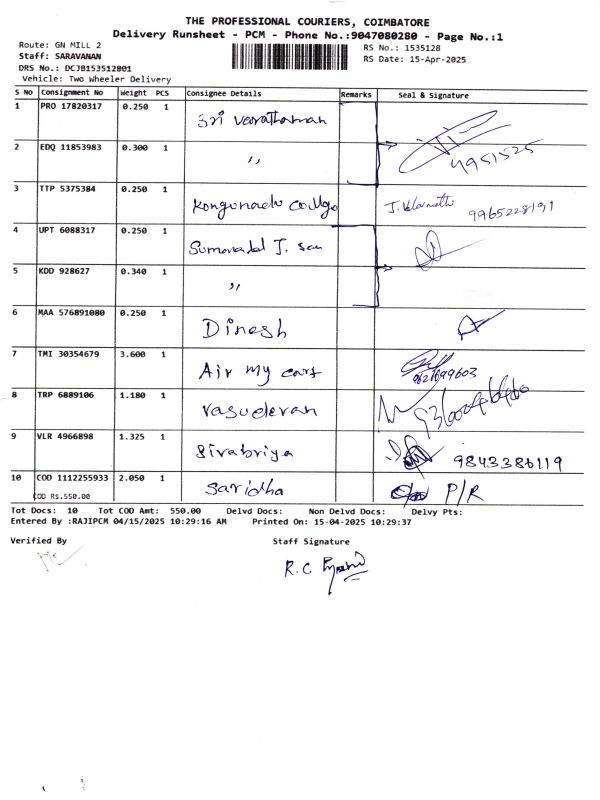 THE PROFESSIONAL COURIERS, COIMBATORE
Delivery Runsheet - PCM - Phone No.:9047080280 - Page No.:1
Route: GN MILL 2 RS No.: 1535128
Staff: SARAVANAN RS Date: 15-Apr-2025
DRS No.: DCJB153512801
Vehicle: Two Wheeler Delivery
S No Consignment No Weight PCS Consignee Details Remarks Seal & Signature
1 PRO 17820317 0.250 1 Sri Varathaman
2 EDQ 11853983 0.300 1 ,, 4951525
3 TTP 5375384 0.250 1 Kongunadu College 9965228191
4 UPT 6088317 0.250 1
5 KDD 928627 0.340 1 ,,
6 MAA 576891080 0.250 1 Dinesh
7 TMI 30354679 3.600 1 Air my cart
8 TRP 6889106 1.180 1 Vasudevan
9 VLR 4966898 1.325 1 Sivabriya 9843386119
10 COD 1112255933 2.050 1 Saridha P/R
COD RS.550.00
Tot Docs: 10 Tot COD Amt: 550.00 Delvd Docs: Non Delvd Docs: Delvy Pts:
Entered By :RAJIPCM 04/15/2025 10:29:16 AM Printed On: 15-04-2025 10:29:37
Verified By Staff Signature
R.C